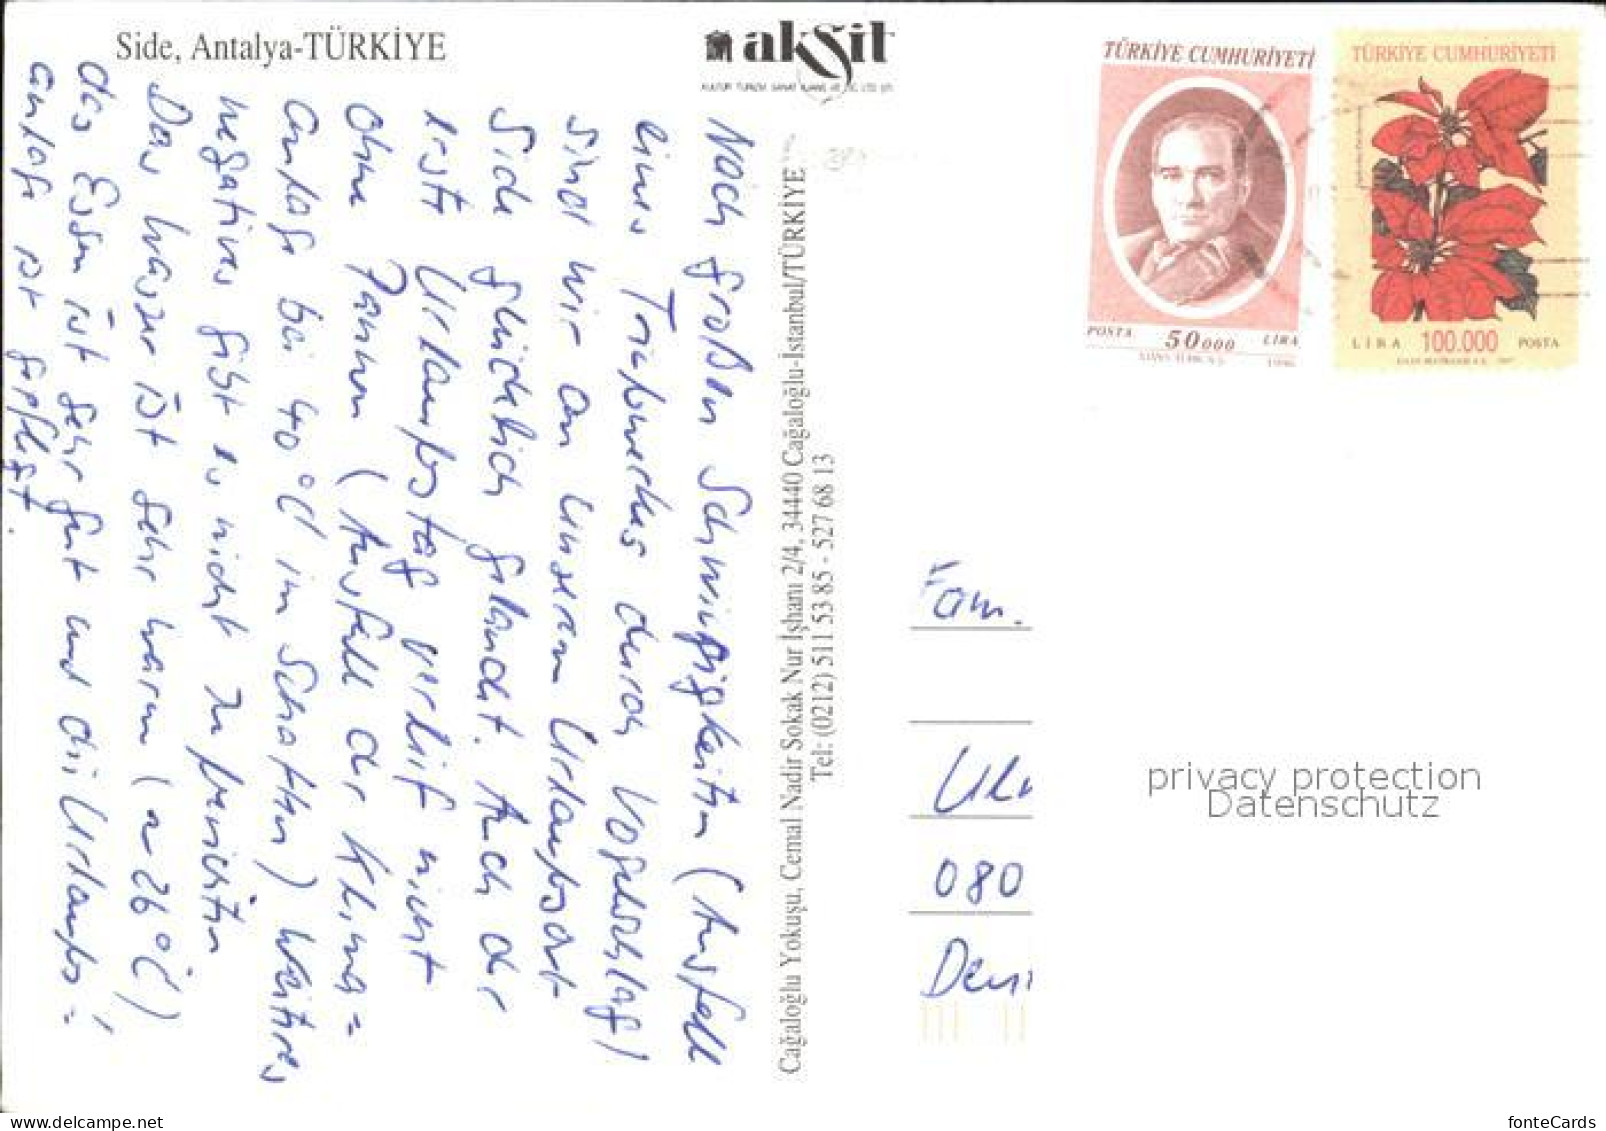 Side, Antalya-TÜRKİYE
akşit
KÜLTÜR TURİZM SANAT AJANS VE TİC. LTD. ŞTİ.
TÜRKİYE CUMHURİYETİ
POSTA 50 000 LİRA
1996
TÜRKİYE CUMHURİYETİ
LİRA 100.000 POSTA
1997
Nach großen Schwierigkeiten (Ausfall
eines Triebwerkes durch Vogelschlag)
sind wir an unserem Urlaubsort
Side glücklich gelandet. Auch der
erste Urlaubstag verlief nicht
ohne Pannen (Ausfall der Klima=
anlage bei 40°C im Schatten) weiteres
negatives gibt es nicht zu berichten
Das Wasser ist sehr warm (≈ 26°C),
das Essen ist sehr gut und die Urlaubs=
anlage ist gepflegt.
Cağaloğlu Yokuşu, Cemal Nadir Sokak Nur İşhanı 2/4, 34440 Cağaloğlu-İstanbul/TÜRKİYE
Tel: (0212) 511 53 85 - 527 68 13
Fam.
080
privacy protection
Datenschutz
fonteCards